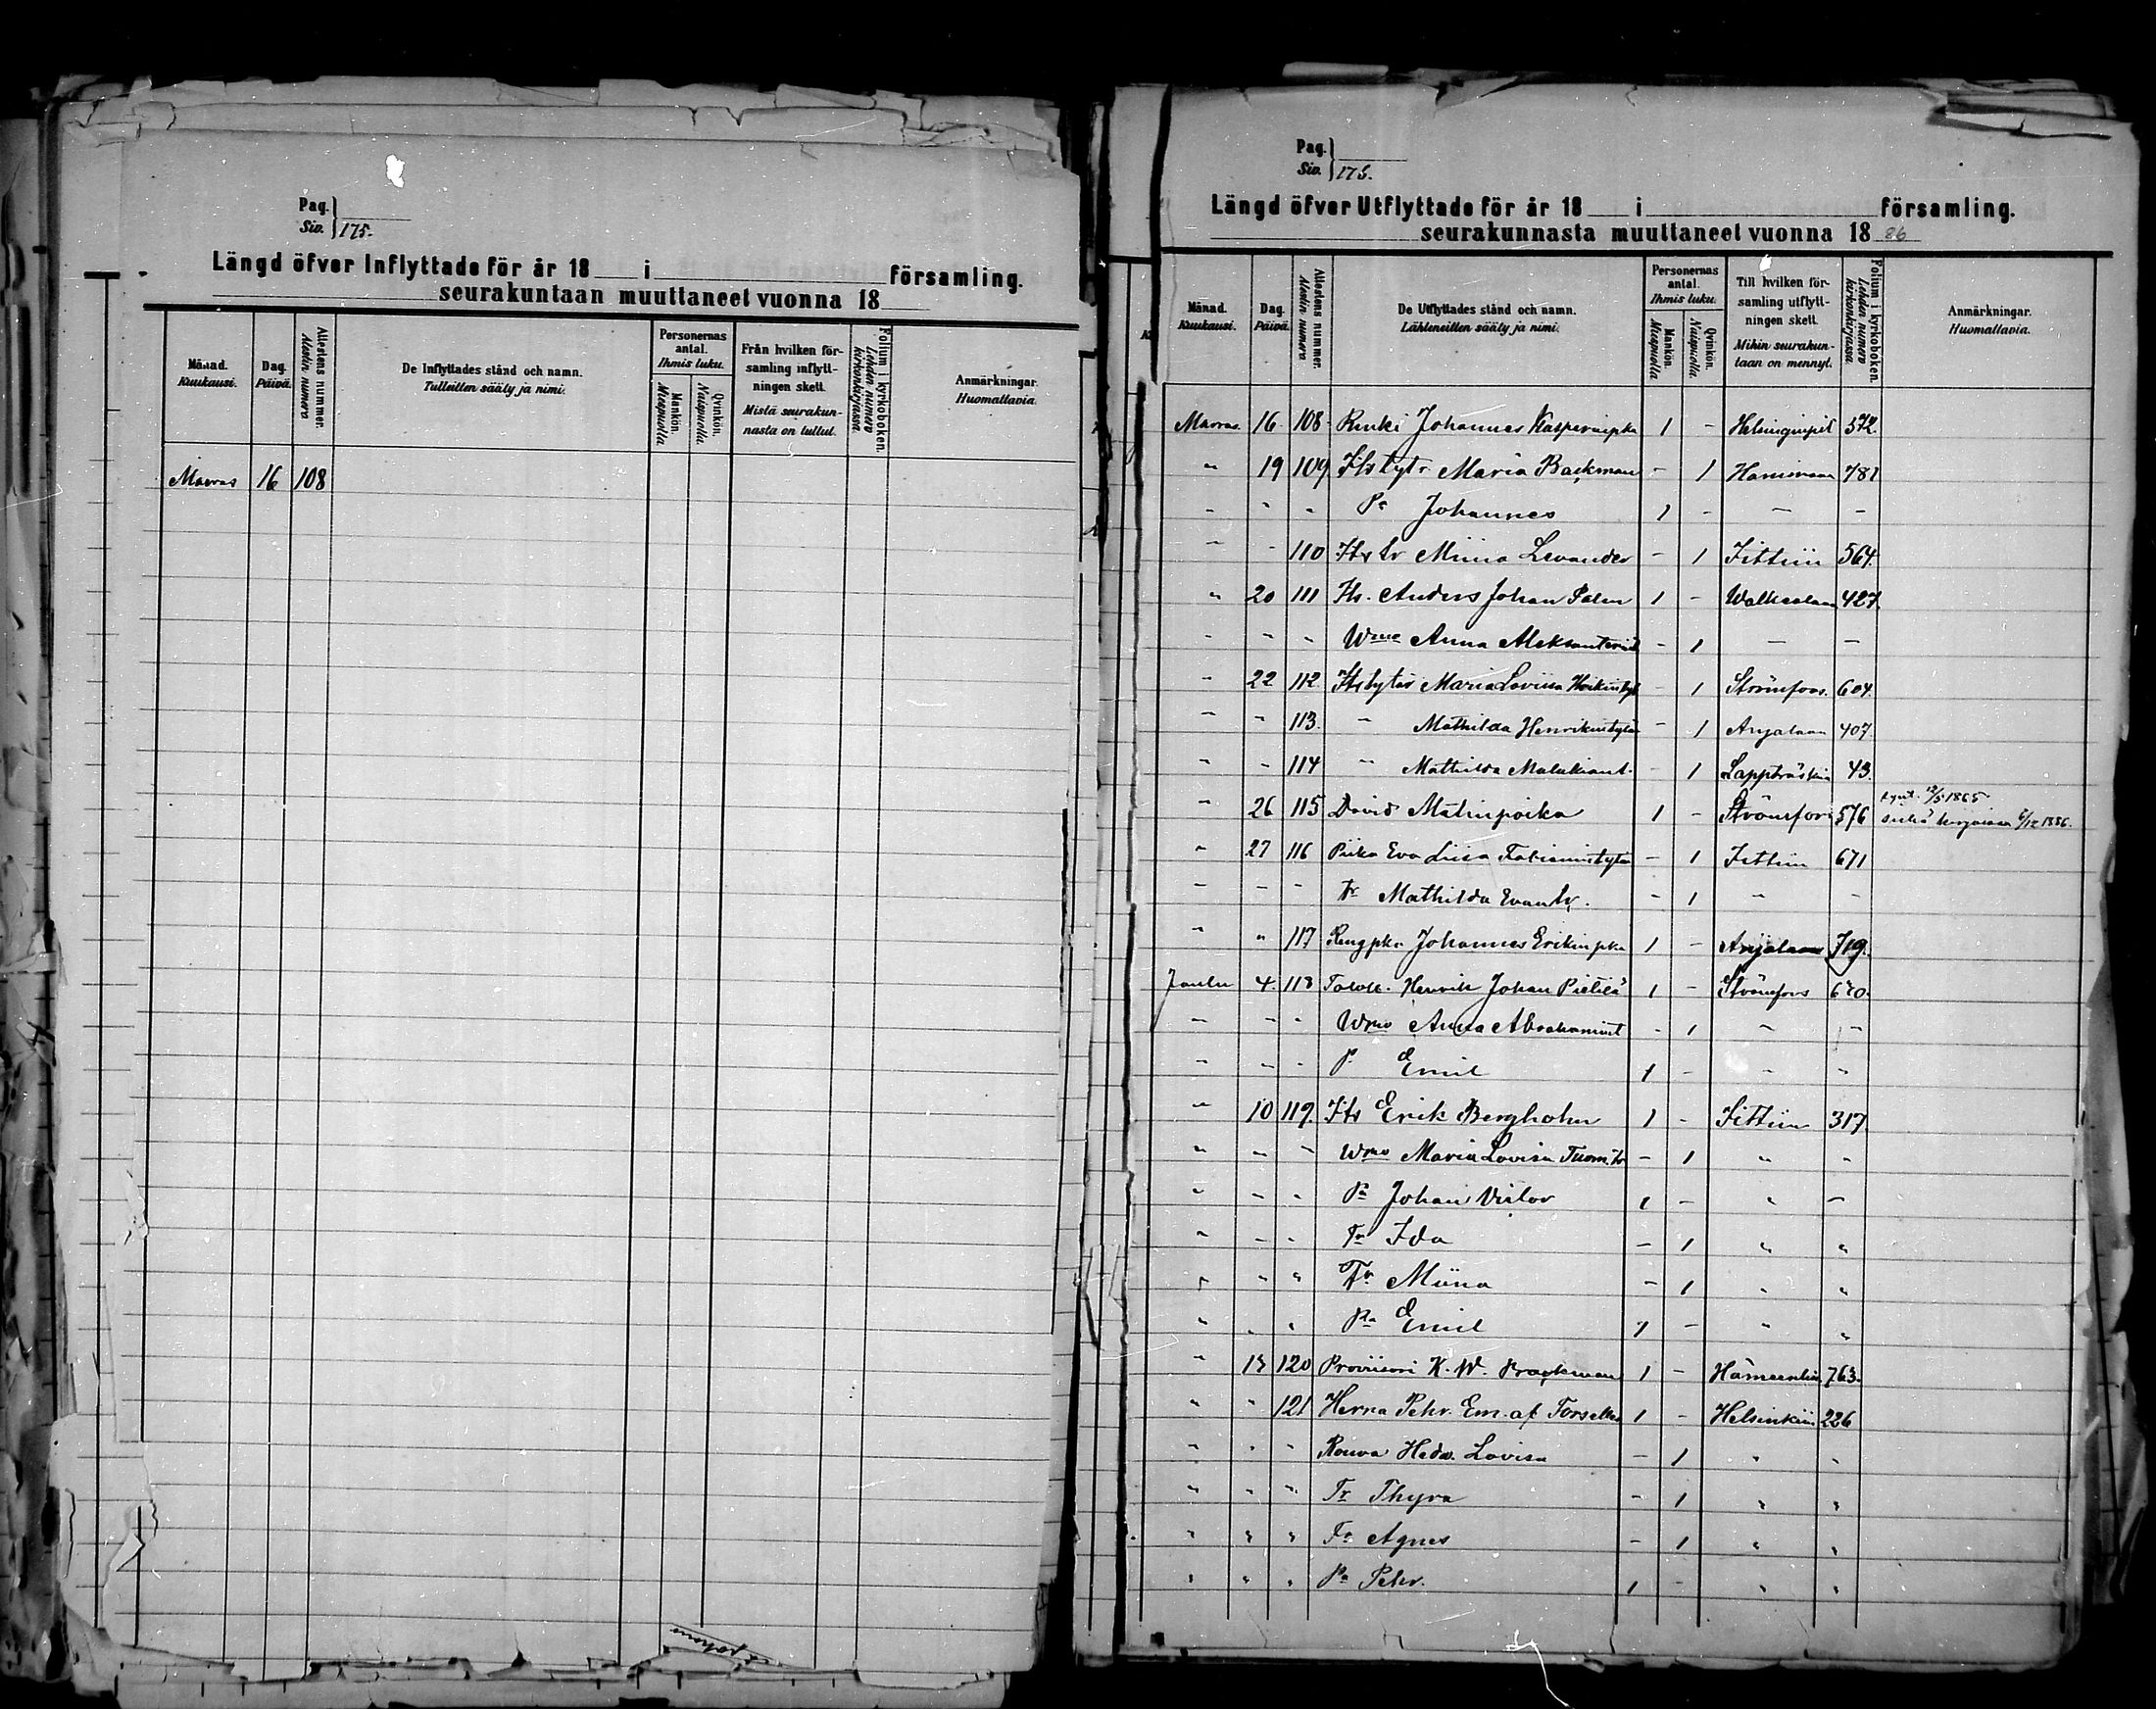 Pag.
Siv. 175.
Längd öfver Inflyttade för år 18 i församling.
seurakuntaan muuttaneet vuonna 18
Månad. Kuukausi.
Dag. Päivä.
Attestens nummer. Alestin numero
De Inflyttades stånd och namn. Tulleitten sääty ja nimi.
Personernas antal. Ihmis luku.
Mankön. Miespuolia
Qvinkön. Naispuolia.
Från hvilken församling inflyttningen skett. Mistä seurakunnasta on tullut.
Folium i kyrkoboken. Lehden numero kirkonkirjassa
Anmärkningar. Huomattavia.
Marras 16 108
Pag.
Siv. 175.
Längd öfver Utflyttade för år 18 i församling.
seurakunnasta muuttaneet vuonna 1886
Månad. Kuukausi.
Dag. Päivä.
Attestens nummer. Alestin numero
De Utflyttades stånd och namn. Lähteneitten sääty ja nimi.
Personernas antal. Ihmis luku.
Mankön. Miespuolia
Qvinkön. Naispuolia.
Till hvilken församling utflyttningen skett. Mihin seurakuntaan on mennyt.
Folium i kyrkoboken. Lehden numero kirkonkirjassa.
Anmärkningar. Huomattavia.
Marras. 16. 108. Renki Johannes Kasperinpka 1 - Helsinginpit 572.
" 19 109 Its tytr. Maria Backman - 1 Haminaan 781
" " " Pa Johannes 1 - - -
" - 110 Its tr Miina Levander - 1 Iittiin 564.
" 20 111 Its. Anders Johan Palm 1 - Walkealaan 427.
" " " Wmo Anna - 1 - -
" 22 112. Its tytär Maria Loviisa - 1 Strömfors. 604.
" " 113. " Mathilda Henrikintytär - 1 Anjalaan 407.
" - 114 " Mathilda Malakiant. - 1 Lappträskiin 43.
" 26 115 David Matinpoika 1 - Strömfors 576 1865. 1886.
" 27 116 Piika Eva Liisa Fabianintytär - 1 Iittiin 671
" - - Tr Mathilda Evantr. - 1 " -
" " 117 Rengpka Johannes Erikinpka 1 - Anjalaan 719.
Joulu 4. 118 Henrik Johan Pietilä 1 - Strömfors 670.
" - " Wmo Anna Abrahamint - 1 " -
" " " P. Emil 1 - " "
" 10 119. Its Erik Bergholm 1 - Iittiin 317.
" - - Wmo Maria Lovisa Tuom.tr - 1 " "
" - " Pa Johan Viktor 1 - " -
" - " Tr Ida - 1 " "
" " " Tr Miina - 1 " "
" " " Pa Emil 1 - " "
" 13 120 Proviisori K. W. Brackman 1 - Hämeenlin. 763.
" " 121 Herra Pehr Em. af Forselles 1 - Helsinkiin 226
" " " Rouva Hedv. Lovisa - 1 " "
" " " Tr Thyra - 1 " "
" " " Tr Agnes - 1 " "
" " " Pa Pehr. 1 - " "